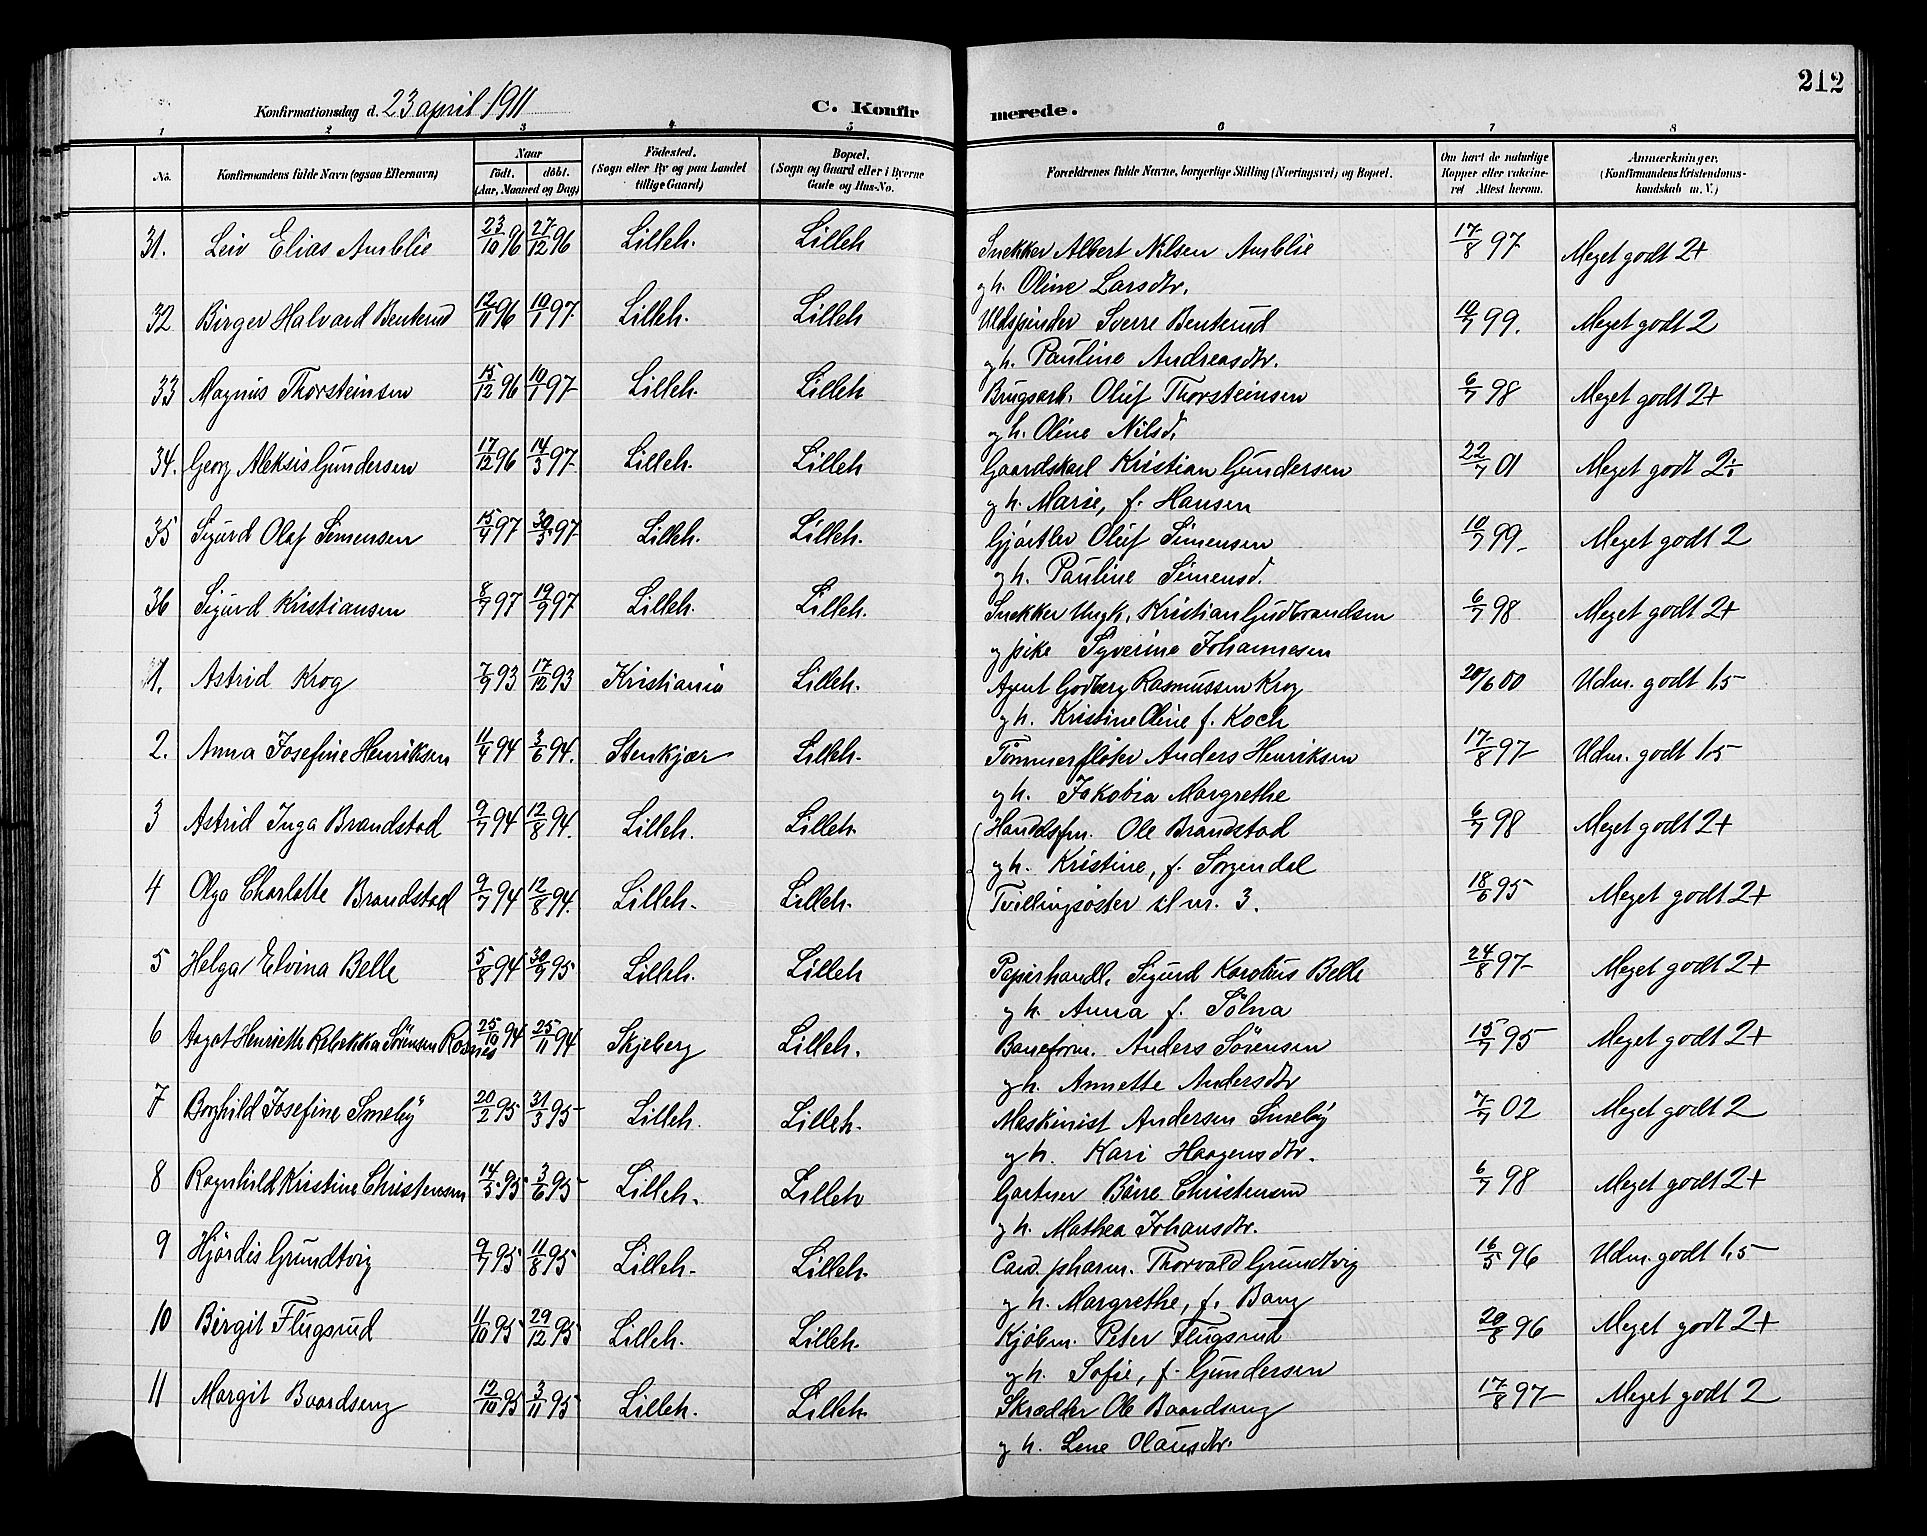 212
Konfirmationsdag d. 23 april 1911
C. Konfirmerede.
1 2 3 4 5 6 7 8
No.
Konfirmandens fulde Navn (ogsaa Efternavn)
Naar
født. døbt.
(Aar, Maaned og Dag)
Fødested.
(Sogn eller By og paa Landet
tillige Gaard)
Bopæl.
(Sogn og Gaard eller i Byerne
Gade og Hus-No.
Forældrenes fulde Navne, borgerlige Stilling (Næringsvei) og Bopæl.
Om havt de naturlige
Kopper eller vakcine-
ret Attest herom.
Anmærkninger,
(Konfirmandens Kristendoms-
kundskab m. V.)
31. Leiv Elias Amblie 23/10 96 27/12 96 Lilleh. Lilleh Snekker Albert Nilsen Amblie 17/8 97 Meget godt 2+
og h. Oline Larsdtr.
32 Birger Halvard Benterud 12/11 96 10/1 97 Lilleh. Lilleh Uldspinder Sverre Benterud 10/7 99. Meget godt 2
og h. Pauline Andreasdtr.
33 Magnus Thorsteinsen 15/12 96 10/1 97 Lilleh. Lilleh Brugsarb. Oluf Thorsteinsen 6/7 98 Meget godt 2+
og h. Oline Nilsd.
34. Georg Aleksis Gundersen 17/12 96 14/3 97 Lilleh. Lilleh Gaardskarl Kristian Gundersen 22/7 01 Meget godt 2÷
og h. Marie, f. Hansen
35 Sigurd Olaf Simensen 15/4 97 30/5 97 Lilleh. Lilleh. Gjørtler Oluf Simensen 10/7 99 Meget godt 2
og h. Pauline Simensd.
36 Sigurd Kristiansen 8/7 97 19/9 97 Lilleh. Lilleh. Snekker Ungk. Kristian Gudbrandsen 6/7 98 Meget godt 2+
og pike Syverine Johannesen
1. Astrid Krog 7/9 93 17/12 93 Kristiania Lilleh. Agent Godberg Rasmussen Krog 20/6 00 Udm. godt 1,5
og h. Kristine Oline f. Koch
2. Anna Josefine Henriksen 11/4 94 3/6 94. Stenkjær Lilleh. Tømmerfløter Anders Henriksen 17/8 97 Udm. godt 1,5
og h. Jakobia Margrethe
3 Astrid Inga Brandstad 9/7 94 12/8 94. Lilleh. Lilleh. Handelsfm. Ole Brandstad 6/7 98 Meget godt 2+
og h. Kristine, f. Sorgendal
4 Olga Charlotte Brandstad 9/7 94 12/8 94. Lilleh. Lilleh. Tvillingsøster til nr. 3. 18/6 95 Meget godt 2+
5 Helga Elvina Belle 5/8 94 30/9 95 Lilleh. Lilleh Papirhandl. Sigurd Karolius Belle 24/8 97 Meget godt 2+
og h. Anna f. Sølna
6 Aagot Henriette Rebekka Sørensen Rosnes 25/10 94 25/11 94 Skjeberg Lilleh. Baneform. Anders Sørensen 15/7 95 Meget godt 2+
og h. Annette Andersdtr
7 Borghild Josefine Smeby 20/2 95 31/3 95 Lilleh. Lilleh. Maskinist Andersen Smeby 7/7 02 Meget godt 2
og h. Kari Haagensdtr.
8 Ragnhild Kristine Christensen 14/3 95 3/6 95 Lilleh. Lilleh Gartner Børre Christensen 6/7 98 Meget godt 2+
og h. Mathea Johansdtr.
9 Hjørdis Grundtvig 9/7 95 11/8 95 Lilleh. Lilleh. Cand. pharm. Thorvald Grundtvig 16/5 96 Udm. godt 1,5
og h. Margrethe, f. Bang
10 Birgit Flugsrud 11/10 95 29/12 95 Lilleh. Lilleh. Kjøbm. Peter Flugsrud 20/8 96 Meget godt 2+
og h. Sofie, f. Gundersen
11 Margit Baardseng 12/10 95 3/11 95 Lilleh. Lilleh. Skrædder Ole Baardseng 17/8 97 Meget godt 2
og h. Lene Olausdtr.